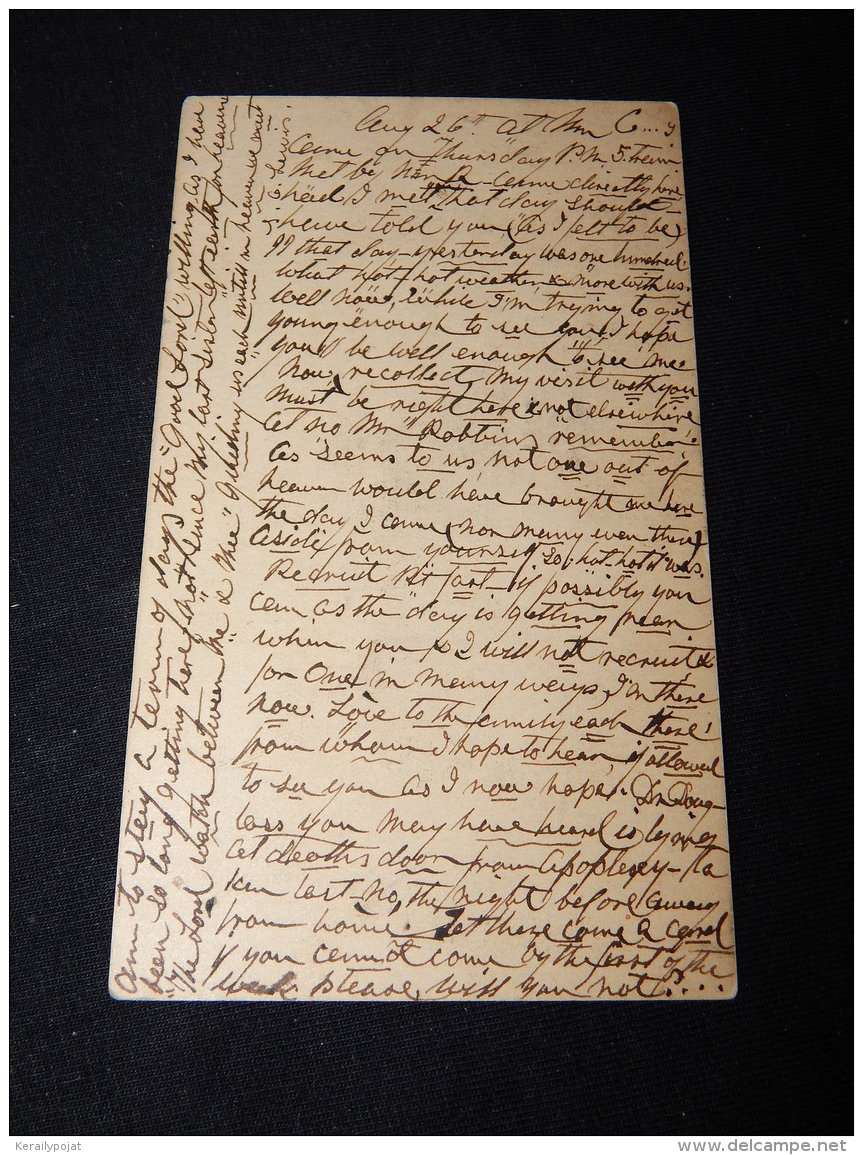 Aug 26th at Mr C...s
Came on Thursday P.M. 5. train
Met by came directly here
had I met that day should
have told you (as I felt to be)
99 that day - yesterday was one hundred.
What hot - hot weather, & more with us.
Well now, while I'm trying to get
young enough to see you, I hope
you'll be well enough to see me.
Now, recollect, my visit with you
must be right here & not elsewhere
at no Mr Robbins "remember"!
As seems to us not one out of
heaven would have brought me here
the day I came (nor many even there)
aside from yourself so hot - hot 'twas.
Recruit fast - if possibly you
can as the day is getting near
when you & I will not recruit &
for One in many ways, I'm there
now. Love to the family each there!
from whom I hope to hear, if allowed
to see you as I now hope. Dr. Doug-
lass you may have heard (is lying
at deaths door from apoplexy - ta
ken last the night before away
from home. Let there come a card
if you cannot come by the first of the
week please, will you not?...
am to stay a term of days the "Good Lord" willing as I have
been so long getting here, "not" since my last sister left earth for heaven
"The Lord watch between me & thee"
us each until in heaven we meet
Kerailypojat
www.delcampe.net